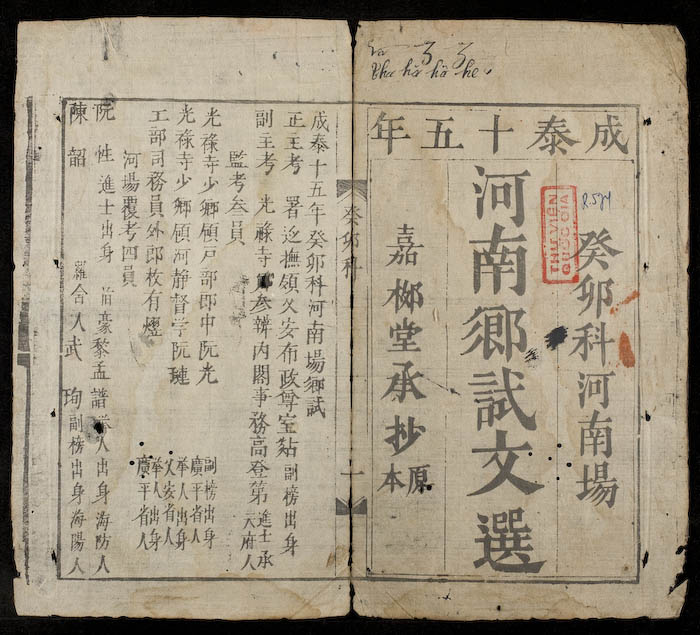 成泰十五年
癸卯科河南場
河南鄉試文選
嘉郴堂承抄
原本
THƯ VIỆN
QUỐC GIA
R.524
癸卯科
一
成泰十五年癸卯科河南場鄉試
正主考
署廵撫領乂安布政尊室
副榜出身
副主考
光祿寺卿叅辦內閣事務高登第
進士承天府人
監考叁員
光祿寺少卿領戶部郎中阮光
副榜出身廣平省人
光祿寺少卿領河靜督学阮璉
舉人出身乂安省人
工部司務員外郎枚有燈
舉人出身廣平省人
河場覆考四員
阮性
進士出身
黎孟譜
舉人出身海防人
陳韶
武珣
副榜出身海陽人